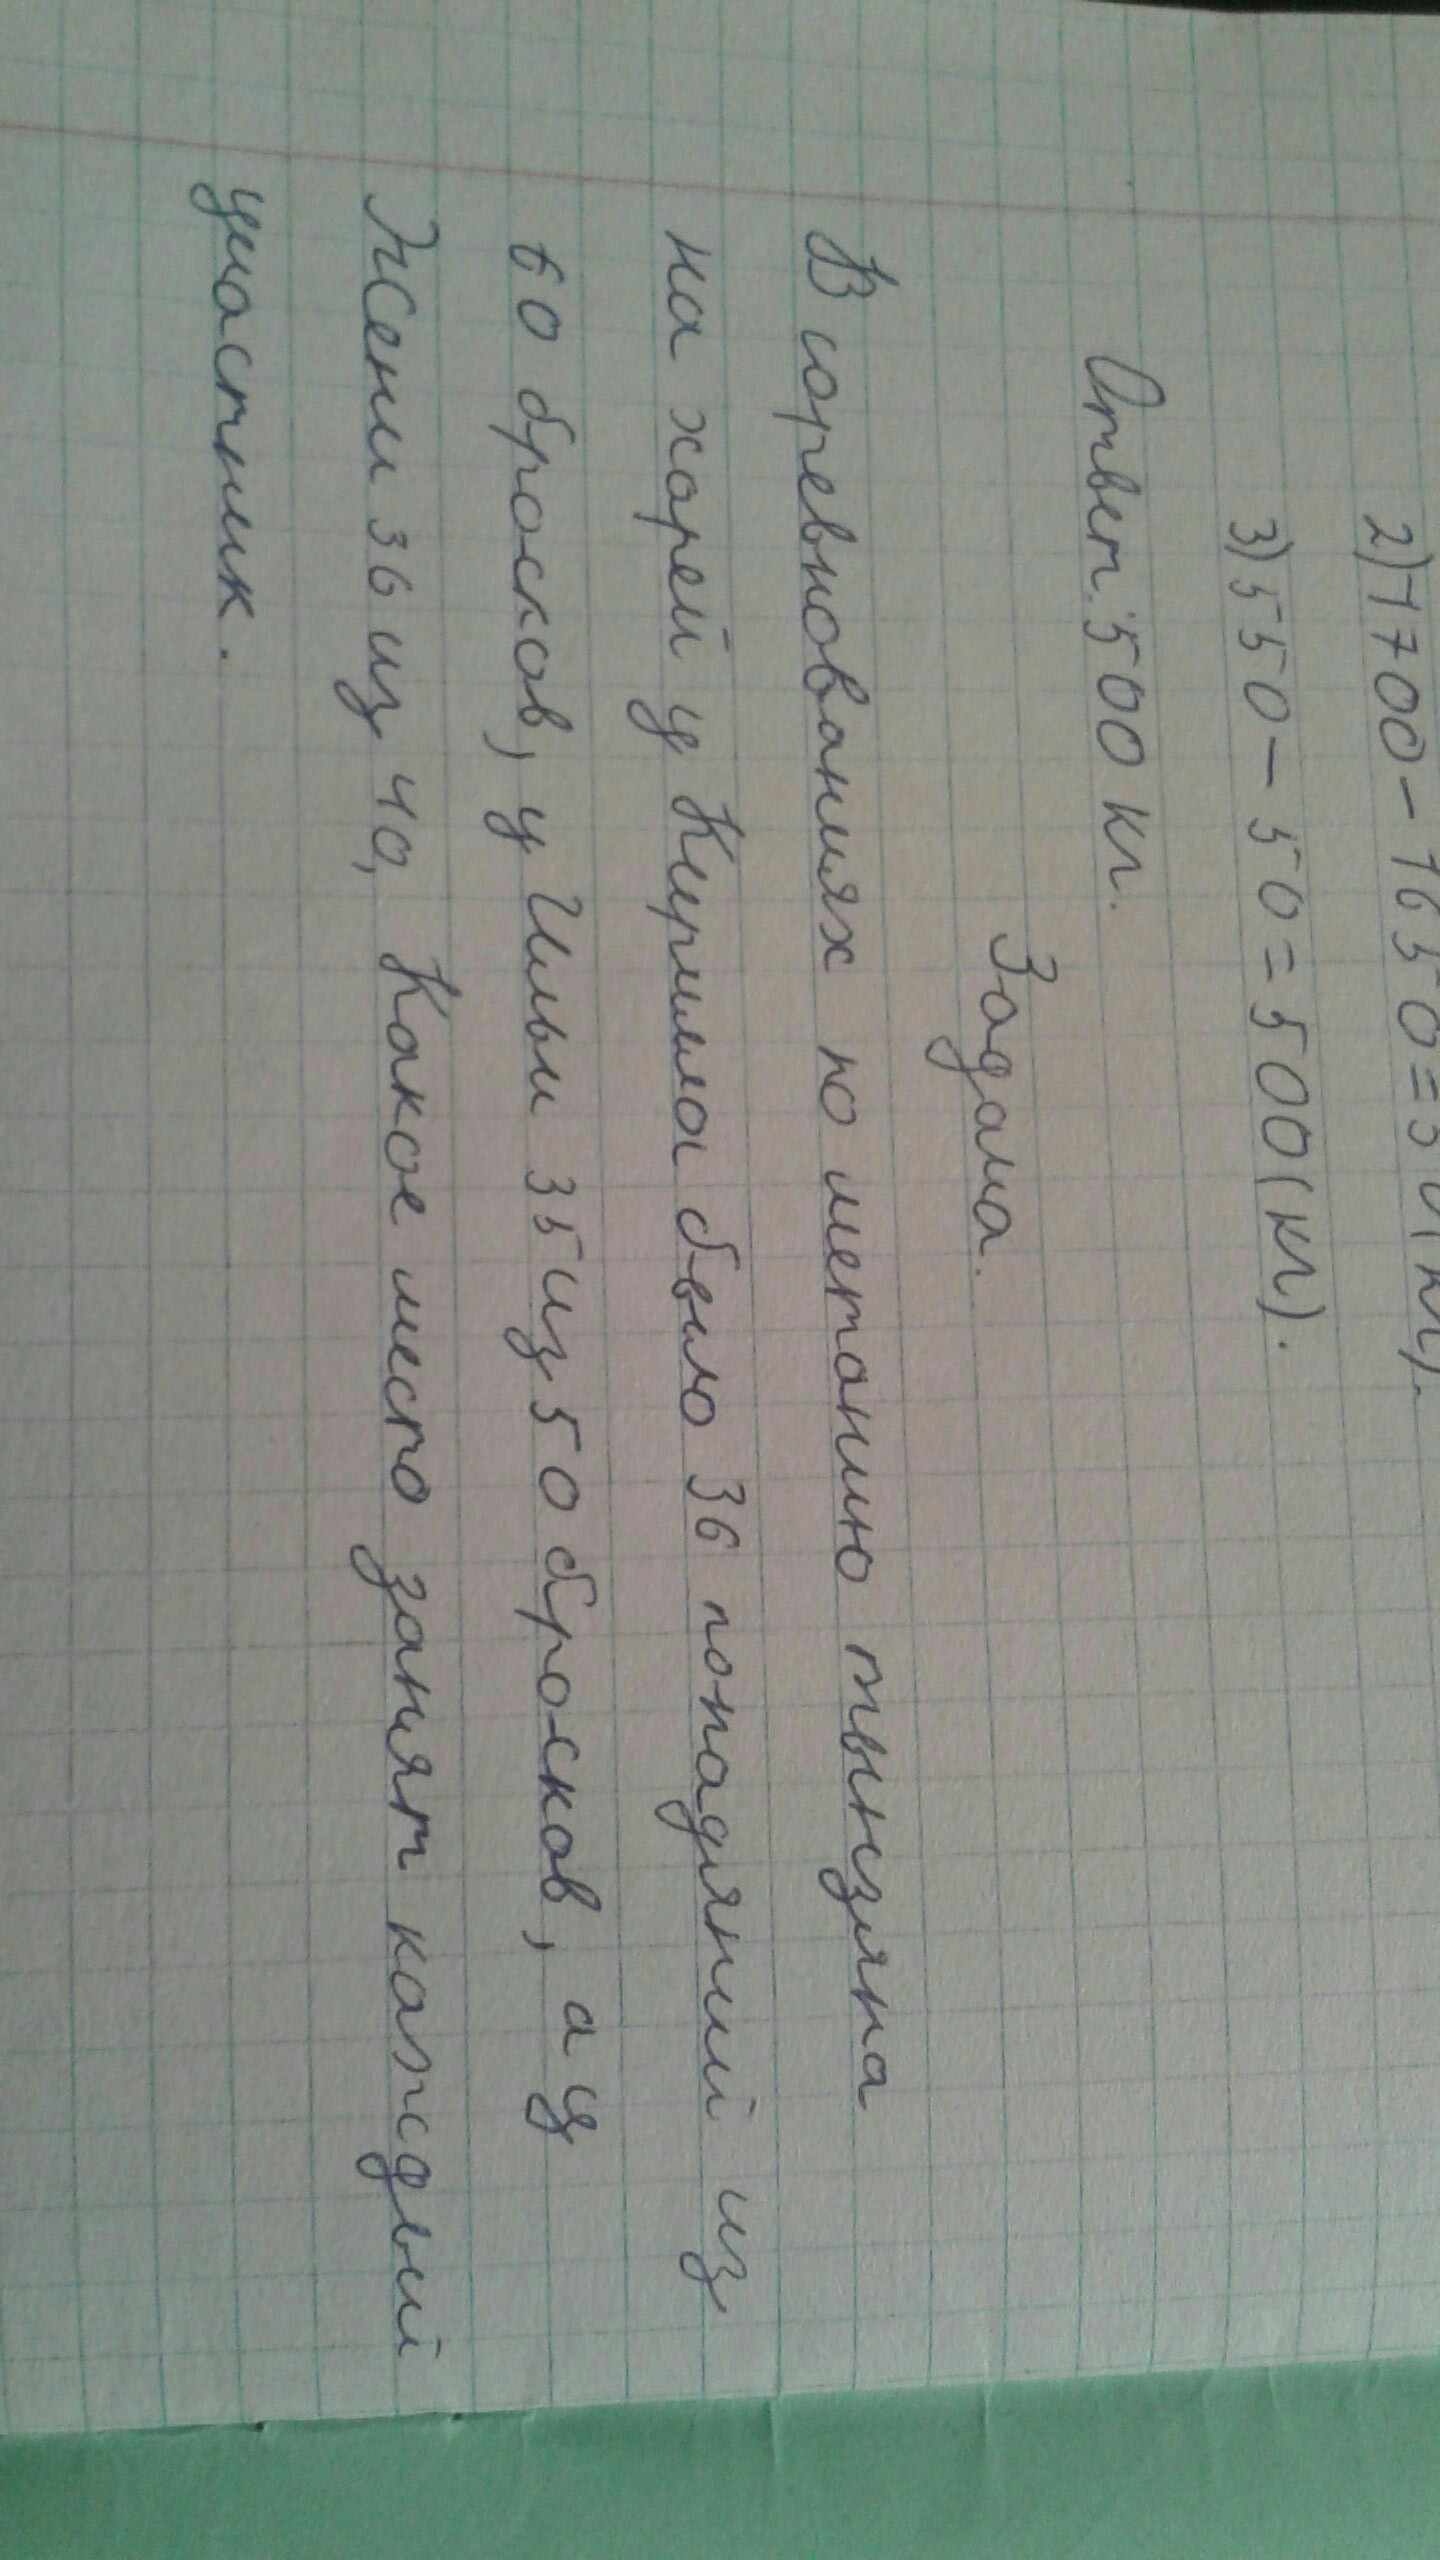 2) 1700 - 1650 = 50 (кг).
3) 550 - 50 = 500 (кг).
Ответ: 500 кг.
Задача.
В соревнованиях по метанию тынзяна
на хорей у Кирилла было 36 попаданий из
60 бросков, у Ильи 35 из 50 бросков, а у
Жени 36 из 40, Какое место занят каждый
участник.